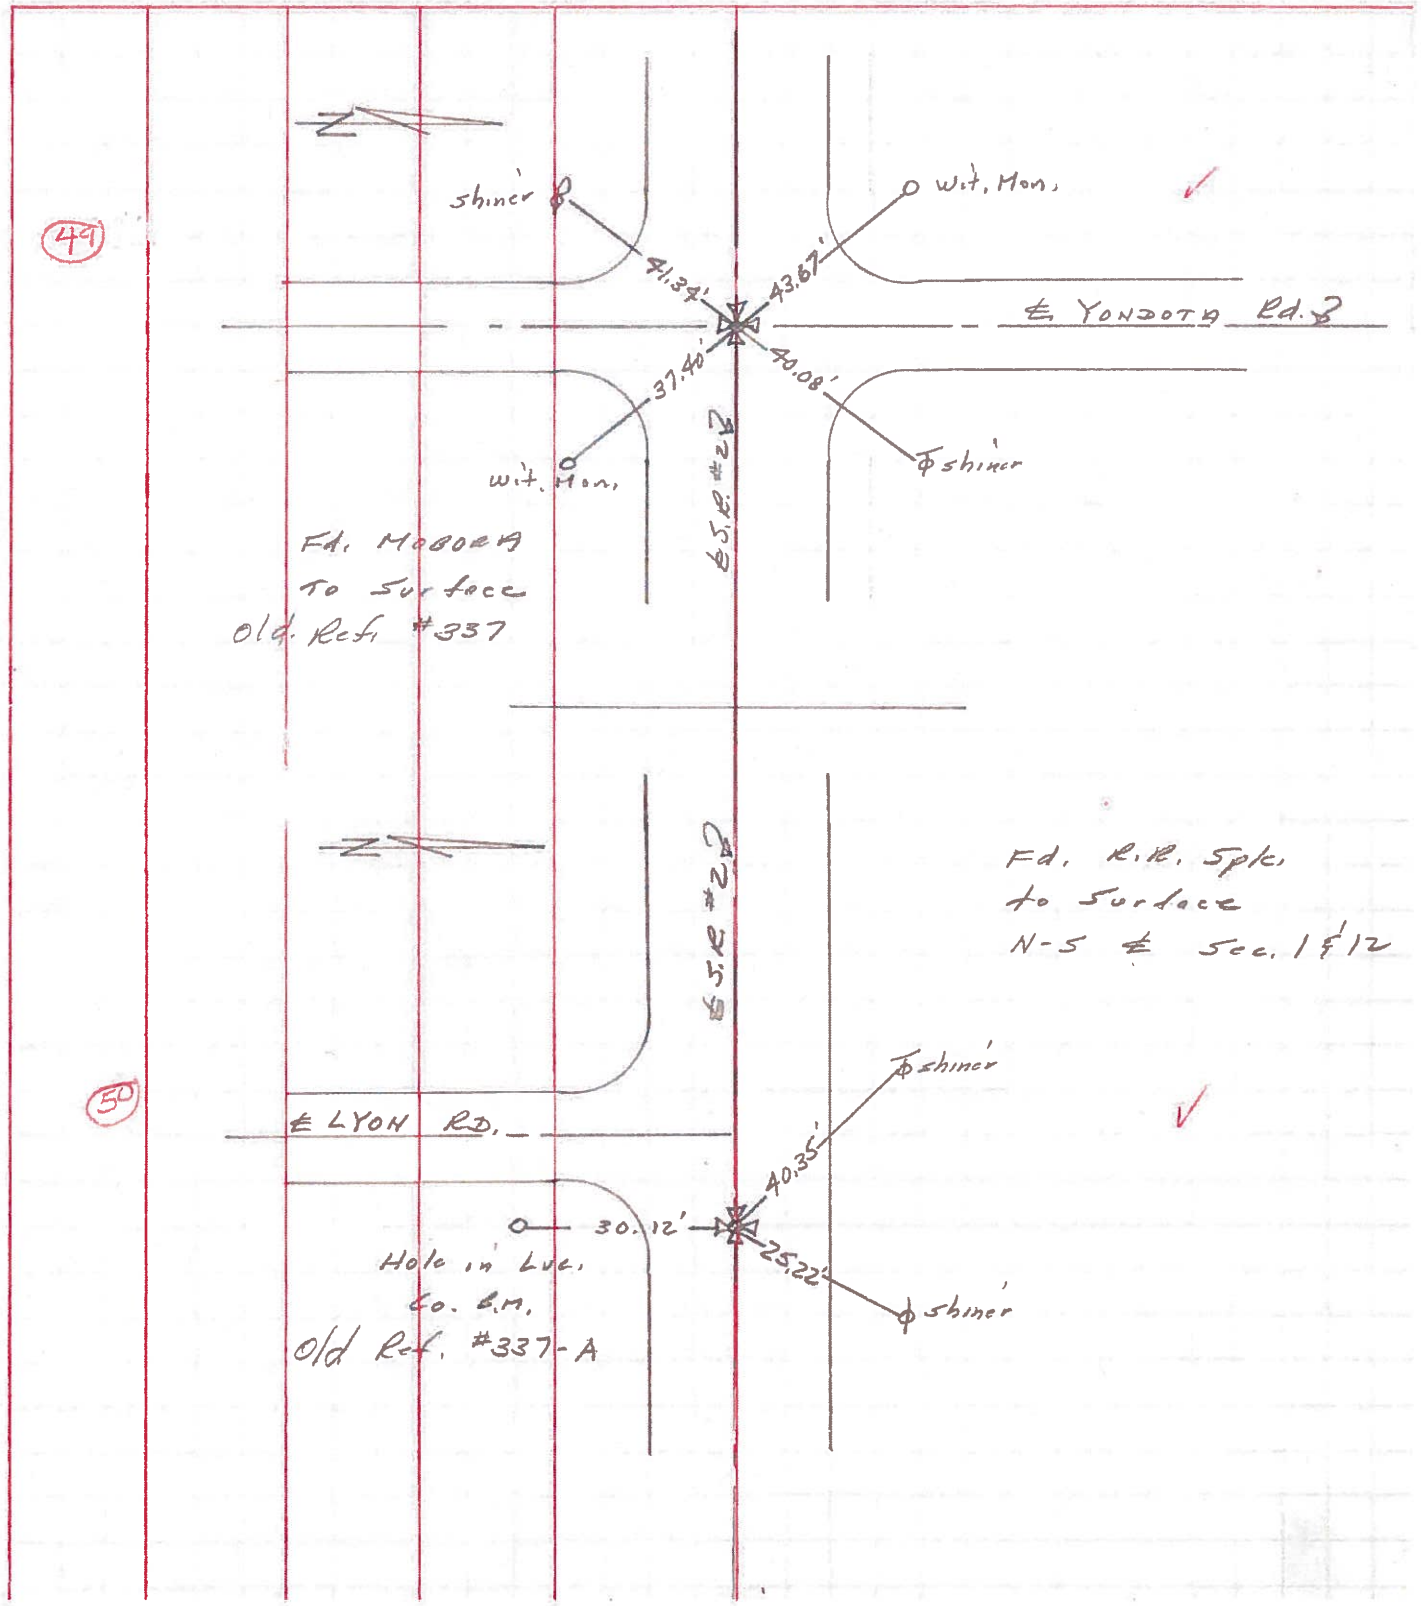 N
shiner
wit. Mon.
49
41.34'
43.67'
℄ YONDOTA Rd.
37.40'
40.08'
℄ S.R. #2
wit. Mon.
shiner
Fd.
To Surface
Old. Ref. #337
N
℄ S.R. #2
Fd. R.R. Spk.
to Surface
N-S ℄ Sec. 1 & 12
shiner
50
℄ LYON RD.
40.35'
30.12'
25.22'
Hole in Luc.
Co. B.M.
shiner
Old Ref. #337-A